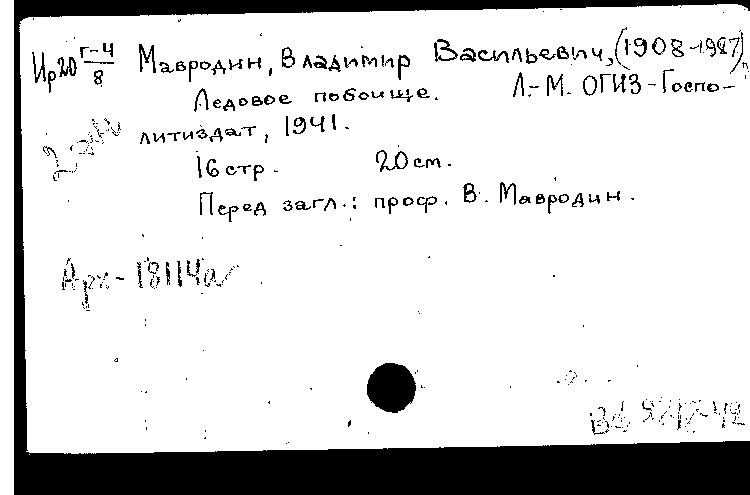 Ир20 г-4/8 Мавродин, Владимир Васильевич, (1908-1987)
Ледовое побоище. Л.-М. ОГИЗ-Госпо-
литиздат, 1941.
2 экз
16 стр. 20 см.
Перед загл.: проф. В. Мавродин.
Арх-18114а